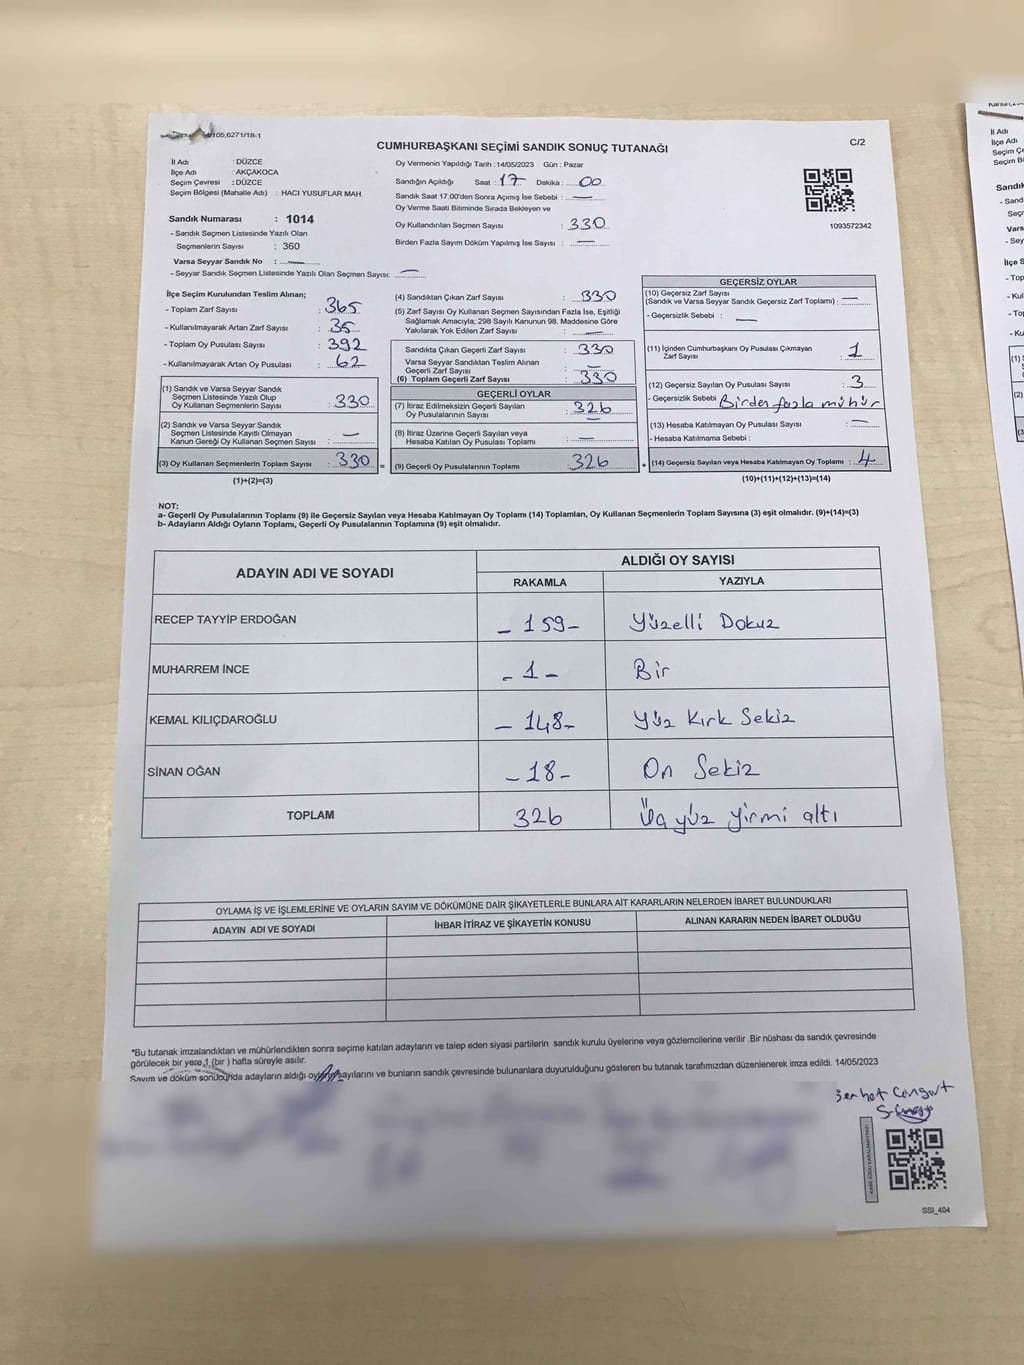 105,6271/1B-1
CUMHURBAŞKANI SEÇİMİ SANDIK SONUÇ TUTANAĞI
C/2
İl Adı : DÜZCE
İlçe Adı : AKÇAKOCA
Seçim Çevresi : DÜZCE
Seçim Bölgesi (Mahalle Adı) : HACI YUSUFLAR MAH.
Sandık Numarası : 1014
- Sandık Seçmen Listesinde Yazılı Olan
Seçmenlerin Sayısı : 360
Varsa Seyyar Sandık No : —
- Seyyar Sandık Seçmen Listesinde Yazılı Olan Seçmen Sayısı: —
Oy Vermenin Yapıldığı Tarih : 14/05/2023 Gün : Pazar
Sandığın Açıldığı Saat : 17 Dakika : 00
Sandık Saat 17:00'den Sonra Açımış İse Sebebi : —
Oy Verme Saati Bitiminde Sırada Bekleyen ve
Oy Kullandırılan Seçmen Sayısı : 330
Birden Fazla Sayım Döküm Yapılmış İse Sayısı : —
1093572342
İlçe Seçim Kurulundan Teslim Alınan;
- Toplam Zarf Sayısı : 365
- Kullanılmayarak Artan Zarf Sayısı : 35
- Toplam Oy Pusulası Sayısı : 392
- Kullanılmayarak Artan Oy Pusulası : 62
(1) Sandık ve Varsa Seyyar Sandık
Seçmen Listesinde Yazılı Olup
Oy Kullanan Seçmenlerin Sayısı : 330
(2) Sandık ve Varsa Seyyar Sandık
Seçmen Listesinde Kayıtlı Olmayan
Kanun Gereği Oy Kullanan Seçmen Sayısı : —
(3) Oy Kullanan Seçmenlerin Toplam Sayısı : 330 =
(1)+(2)=(3)
(4) Sandıktan Çıkan Zarf Sayısı : 330
(5) Zarf Sayısı Oy Kullanan Seçmen Sayısından Fazla İse, Eşitliği
Sağlamak Amacıyla; 298 Sayılı Kanunun 98. Maddesine Göre
Yakılarak Yok Edilen Zarf Sayısı : —
Sandıkta Çıkan Geçerli Zarf Sayısı : 330
Varsa Seyyar Sandıktan Teslim Alınan
Geçerli Zarf Sayısı : —
(6) Toplam Geçerli Zarf Sayısı : 330
GEÇERLİ OYLAR
(7) İtiraz Edilmeksizin Geçerli Sayılan
Oy Pusulalarının Sayısı : 326
(8) İtiraz Üzerine Geçerli Sayılan veya
Hesaba Katılan Oy Pusulası Toplamı : —
(9) Geçerli Oy Pusulalarının Toplamı : 326 +
GEÇERSİZ OYLAR
(10) Geçersiz Zarf Sayısı
(Sandık ve Varsa Seyyar Sandık Geçersiz Zarf Toplamı) : —
- Geçersizlik Sebebi : —
(11) İçinden Cumhurbaşkanı Oy Pusulası Çıkmayan
Zarf Sayısı : 1
(12) Geçersiz Sayılan Oy Pusulası Sayısı : 3
- Geçersizlik Sebebi : Birden fazla mühür
(13) Hesaba Katılmayan Oy Pusulası Sayısı : —
- Hesaba Katılmama Sebebi :
(14) Geçersiz Sayılan veya Hesaba Katılmayan Oy Toplamı : 4
(10)+(11)+(12)+(13)=(14)
NOT:
a- Geçerli Oy Pusulalarının Toplamı (9) ile Geçersiz Sayılan veya Hesaba Katılmayan Oy Toplamı (14) Toplamları, Oy Kullanan Seçmenlerin Toplam Sayısına (3) eşit olmalıdır. (9)+(14)=(3)
b- Adayların Aldığı Oyların Toplamı, Geçerli Oy Pusulalarının Toplamına (9) eşit olmalıdır.
ADAYIN ADI VE SOYADI
ALDIĞI OY SAYISI
RAKAMLA YAZIYLA
RECEP TAYYİP ERDOĞAN - 159 - Yüzelli Dokuz
MUHARREM İNCE - 1 - Bir
KEMAL KILIÇDAROĞLU - 148 - Yüz Kırk Sekiz
SİNAN OĞAN - 18 - On Sekiz
TOPLAM 326 Üç yüz yirmi altı
OYLAMA İŞ VE İŞLEMLERİNE VE OYLARIN SAYIM VE DÖKÜMÜNE DAİR ŞİKAYETLERLE BUNLARA AİT KARARLARIN NELERDEN İBARET BULUNDUKLARI
ADAYIN ADI VE SOYADI
İHBAR İTİRAZ VE ŞİKAYETİN KONUSU
ALINAN KARARIN NEDEN İBARET OLDUĞU
*Bu tutanak imzalandıktan ve mühürlendikten sonra seçime katılan adayların ve talep eden siyasi partilerin sandık kurulu üyelerine veya gözlemcilerine verilir .Bir nüshası da sandık çevresinde
görülecek bir yere 1 (bir ) hafta süreyle asılır.
Sayım ve döküm sonucunda adayların aldığı oyların sayılarını ve bunların sandık çevresinde bulunanlara duyurulduğunu gösteren bu tutanak tarafımızdan düzenlenerek imza edildi. 14/05/2023
SSI_404
İl Adı
İlçe Adı